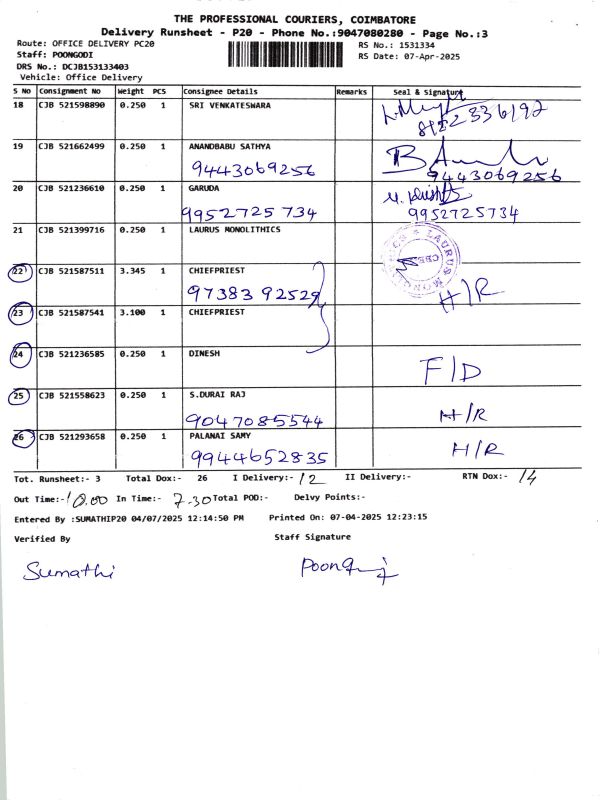 THE PROFESSIONAL COURIERS, COIMBATORE
Delivery Runsheet - P20 - Phone No.:9047080280 - Page No.:3
Route: OFFICE DELIVERY PC20 RS No.: 1531334
Staff: POONGODI RS Date: 07-Apr-2025
DRS No.: DCJB153133403
Vehicle: Office Delivery
S No Consignment No Weight PCS Consignee Details Remarks Seal & Signature
18 CJB 521598890 0.250 1 SRI VENKATESWARA
19 CJB 521662499 0.250 1 ANANDBABU SATHYA
9443069256 9443069256
20 CJB 521236610 0.250 1 GARUDA
9952725734 9952725734
21 CJB 521399716 0.250 1 LAURUS MONOLITHICS
22 CJB 521587511 3.345 1 CHIEFPRIEST
9738392529 H/R
23 CJB 521587541 3.100 1 CHIEFPRIEST
24 CJB 521236585 0.250 1 DINESH F/D
25 CJB 521558623 0.250 1 S.DURAI RAJ H/R
9047085544
26 CJB 521293658 0.250 1 PALANAI SAMY H/R
9944652835
Tot. Runsheet:- 3 Total Dox:- 26 I Delivery:- 12 II Delivery:- RTN Dox:- 14
Out Time:- 10.00 In Time:- 7.30 Total POD:- Delvy Points:-
Entered By :SUMATHIP20 04/07/2025 12:14:50 PM Printed On: 07-04-2025 12:23:15
Verified By Staff Signature
Sumathi